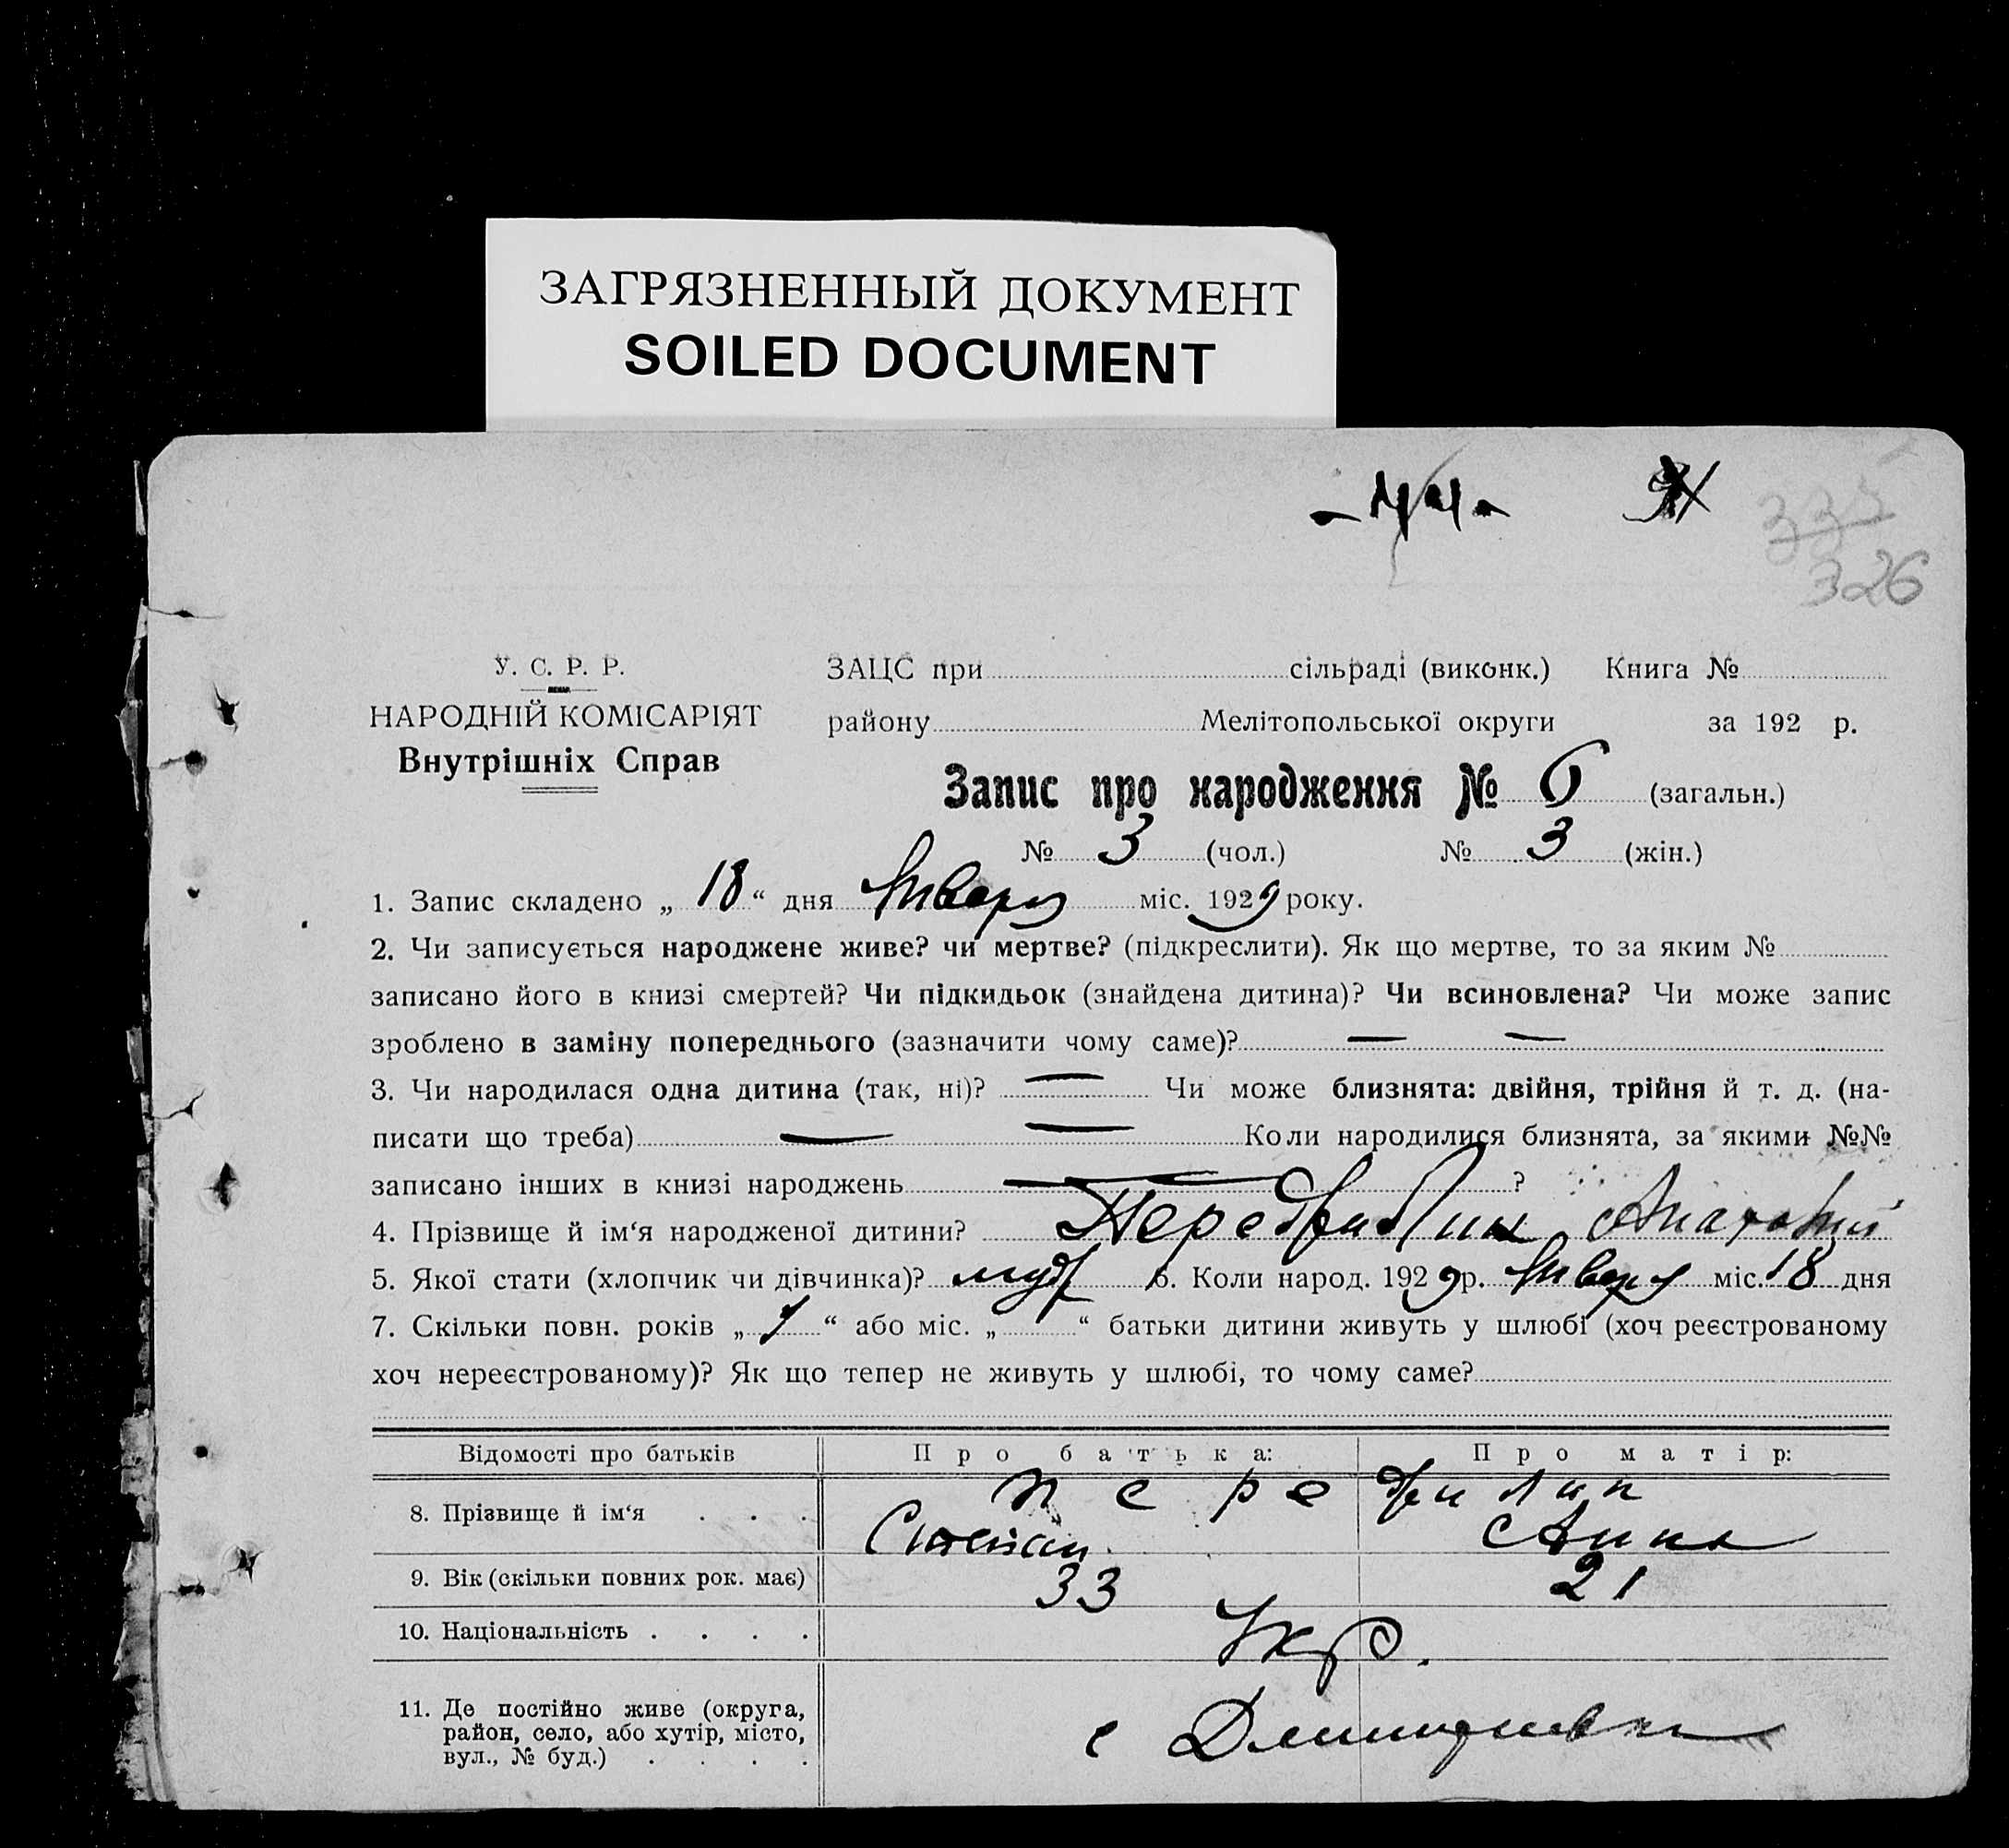 ЗАГРЯЗНЕННЫЙ ДОКУМЕНТ
SOILED DOCUMENT
335
326
У. С. Р. Р.
НАРОДНІЙ КОМІСАРІЯТ
Внутрішніх Справ
ЗАЦС при сільраді (виконк.) Книга №
району Мелітопольської округи за 192 р.
Запис про народження № 6 (загальн.)
№ 3 (чол.) № 3 (жін.)
1. Запис складено „ 18 “ дня Января міс. 1929 року.
2. Чи записується народжене живе? чи мертве? (підкреслити). Як що мертве, то за яким №
записано його в книзі смертей? Чи підкидьок (знайдена дитина)? Чи всиновлена? Чи може запис
зроблено в заміну попереднього (зазначити чому саме)? — —
3. Чи народилася одна дитина (так, ні)? — Чи може близнята: двійня, трійня й т. д. (на-
писати що треба) — — Коли народилися близнята, за якими №№
записано інших в книзі народжень — ?
4. Прізвище й ім‘я народженої дитини? Анатолий
5. Якої стати (хлопчик чи дівчинка)? муж 6. Коли народ. 1929 р. Января міс. 18 дня
7. Скільки повн. років „ 1 “ або міс. „ “ батьки дитини живуть у шлюбі (хоч реєстрованому
хоч нереєстрованому)? Як що тепер не живуть у шлюбі, то чому саме?
Відомості про батьків Про батька: Про матір:
8. Прізвище й ім‘я . . . Степан Анна
9. Вік (скільки повних рок. має) 33 21
10. Національність . . . . Укр.
11. Де постійно живе (округа,
район, село, або хутір, місто,
вул., № буд.) . . . . с